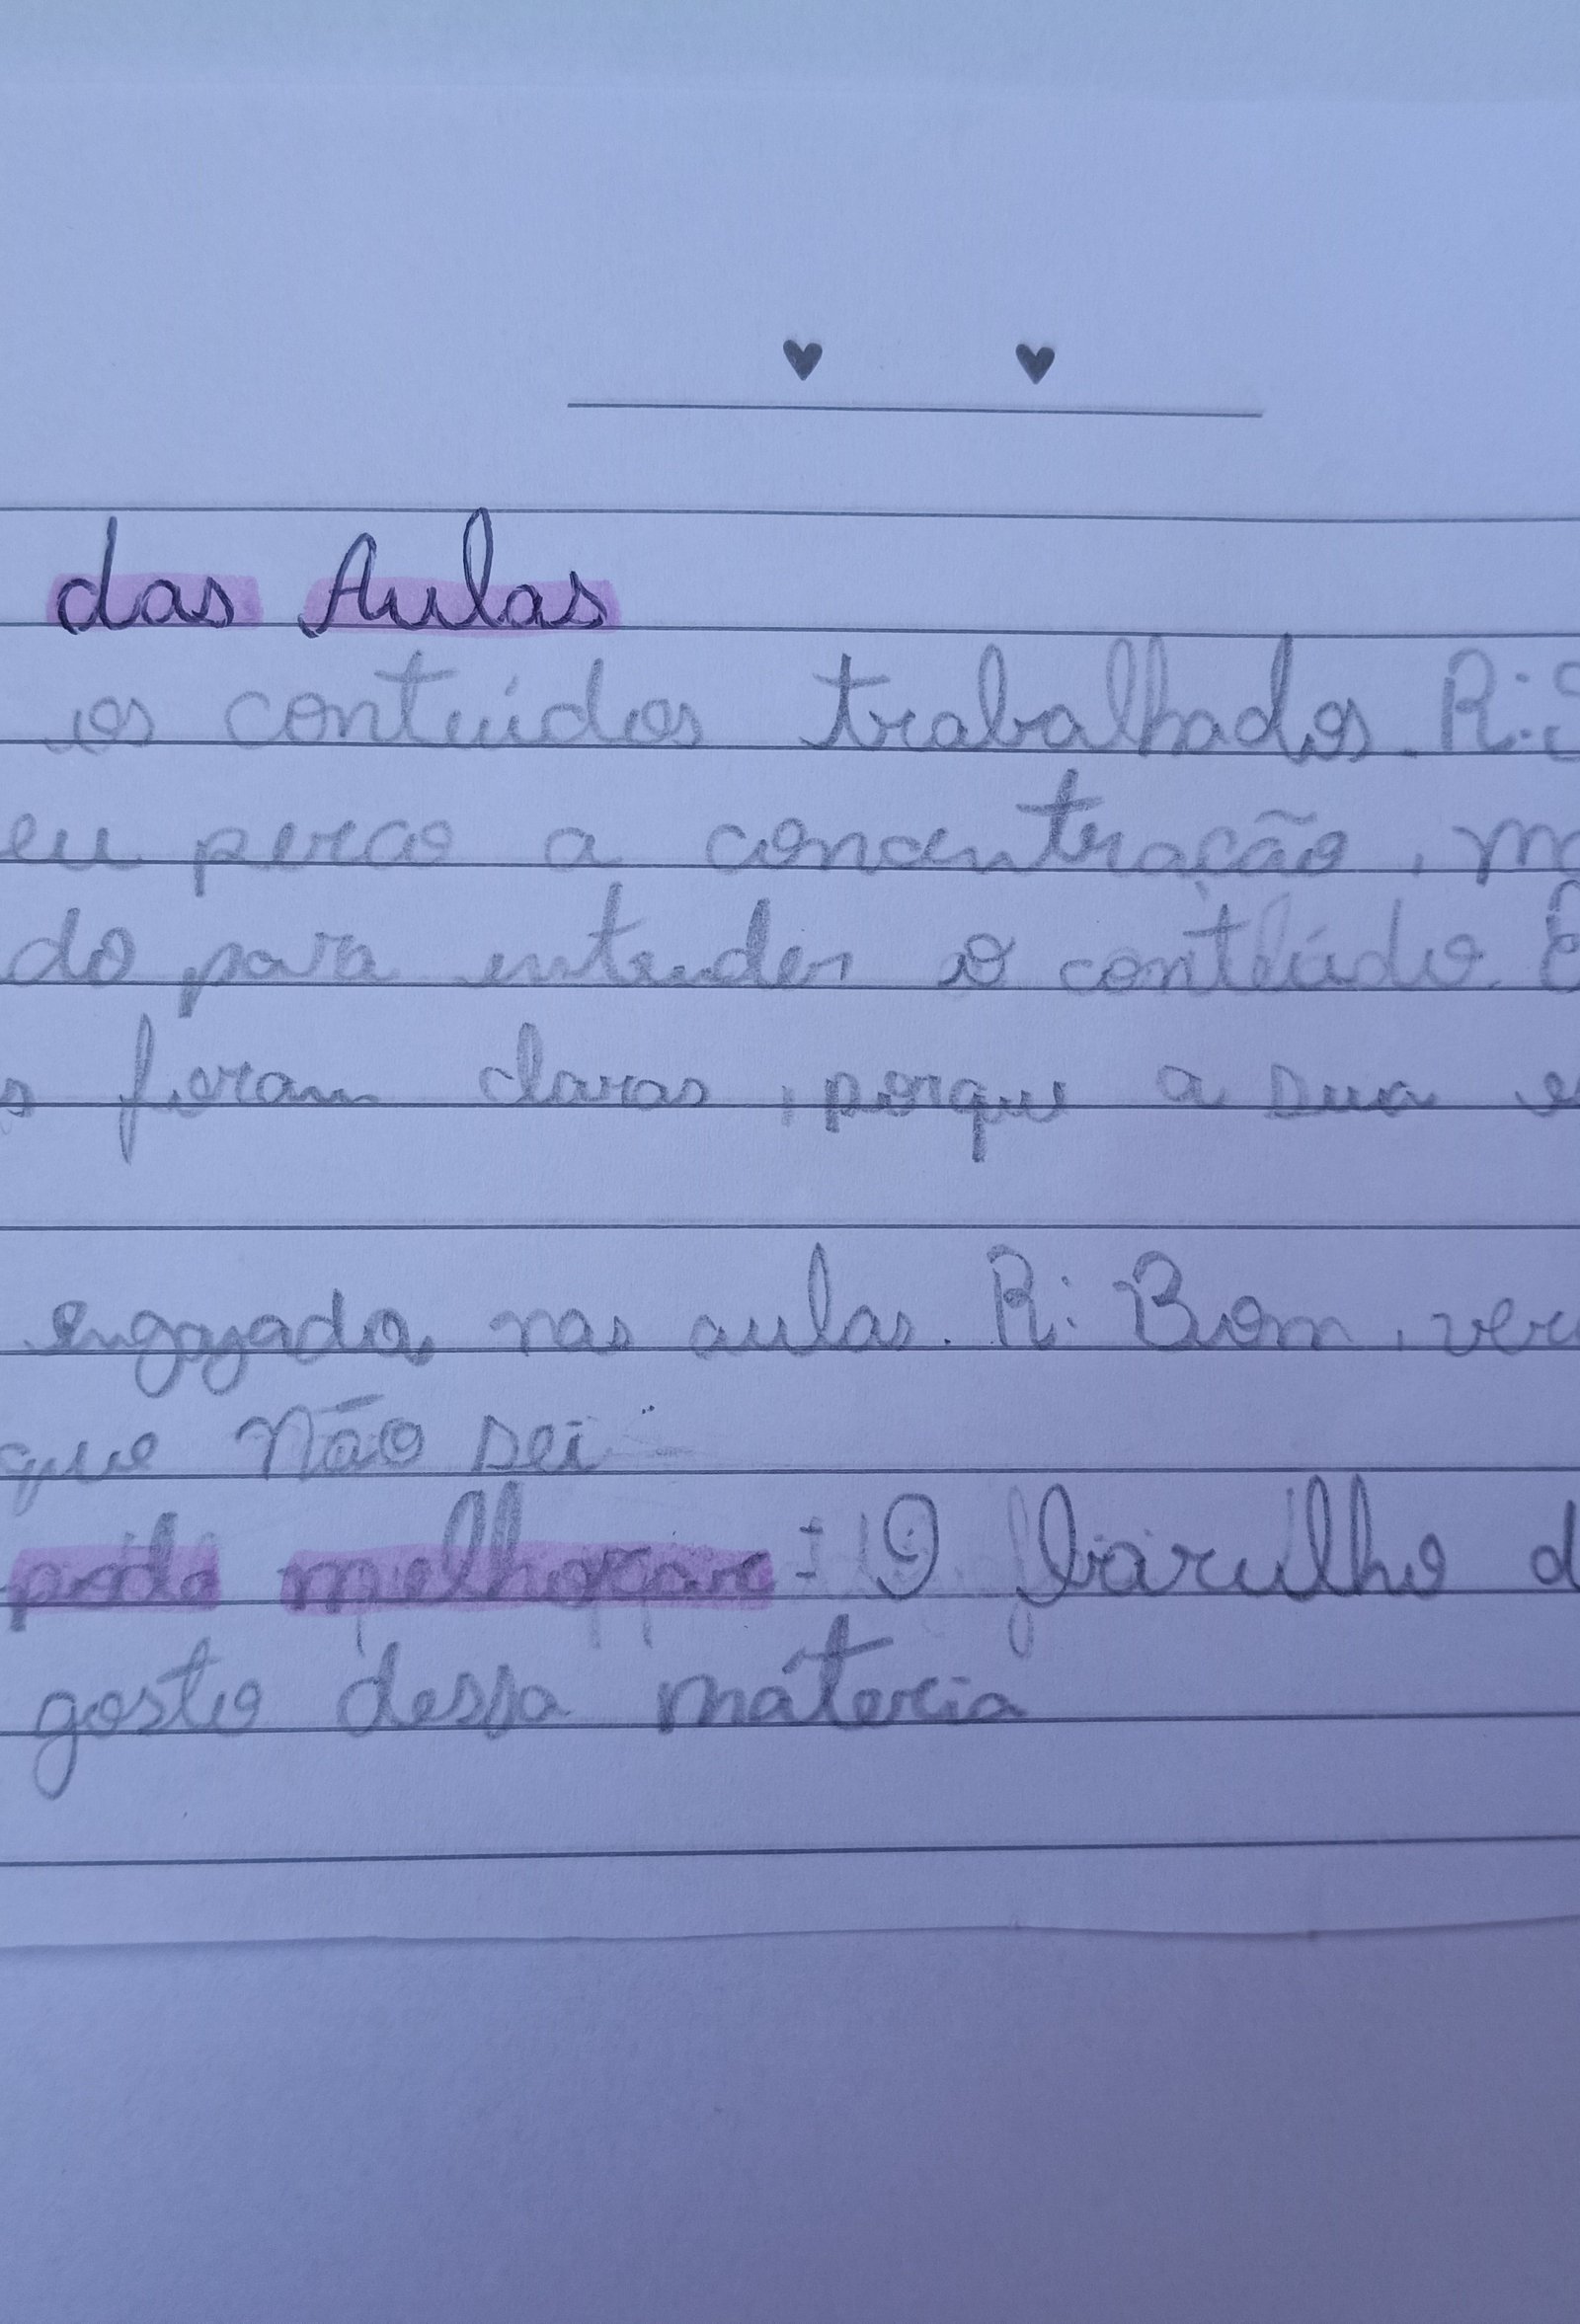 das Aulas
os conteúdos trabalhados. R:
eu perco a concentração, m
do para entender o conteúdo.
s foram claras, porque a sua e
engajada nas aulas. R: Bom, ver
que não sei
pode melhorar: O barulho d
gosto dessa máteria